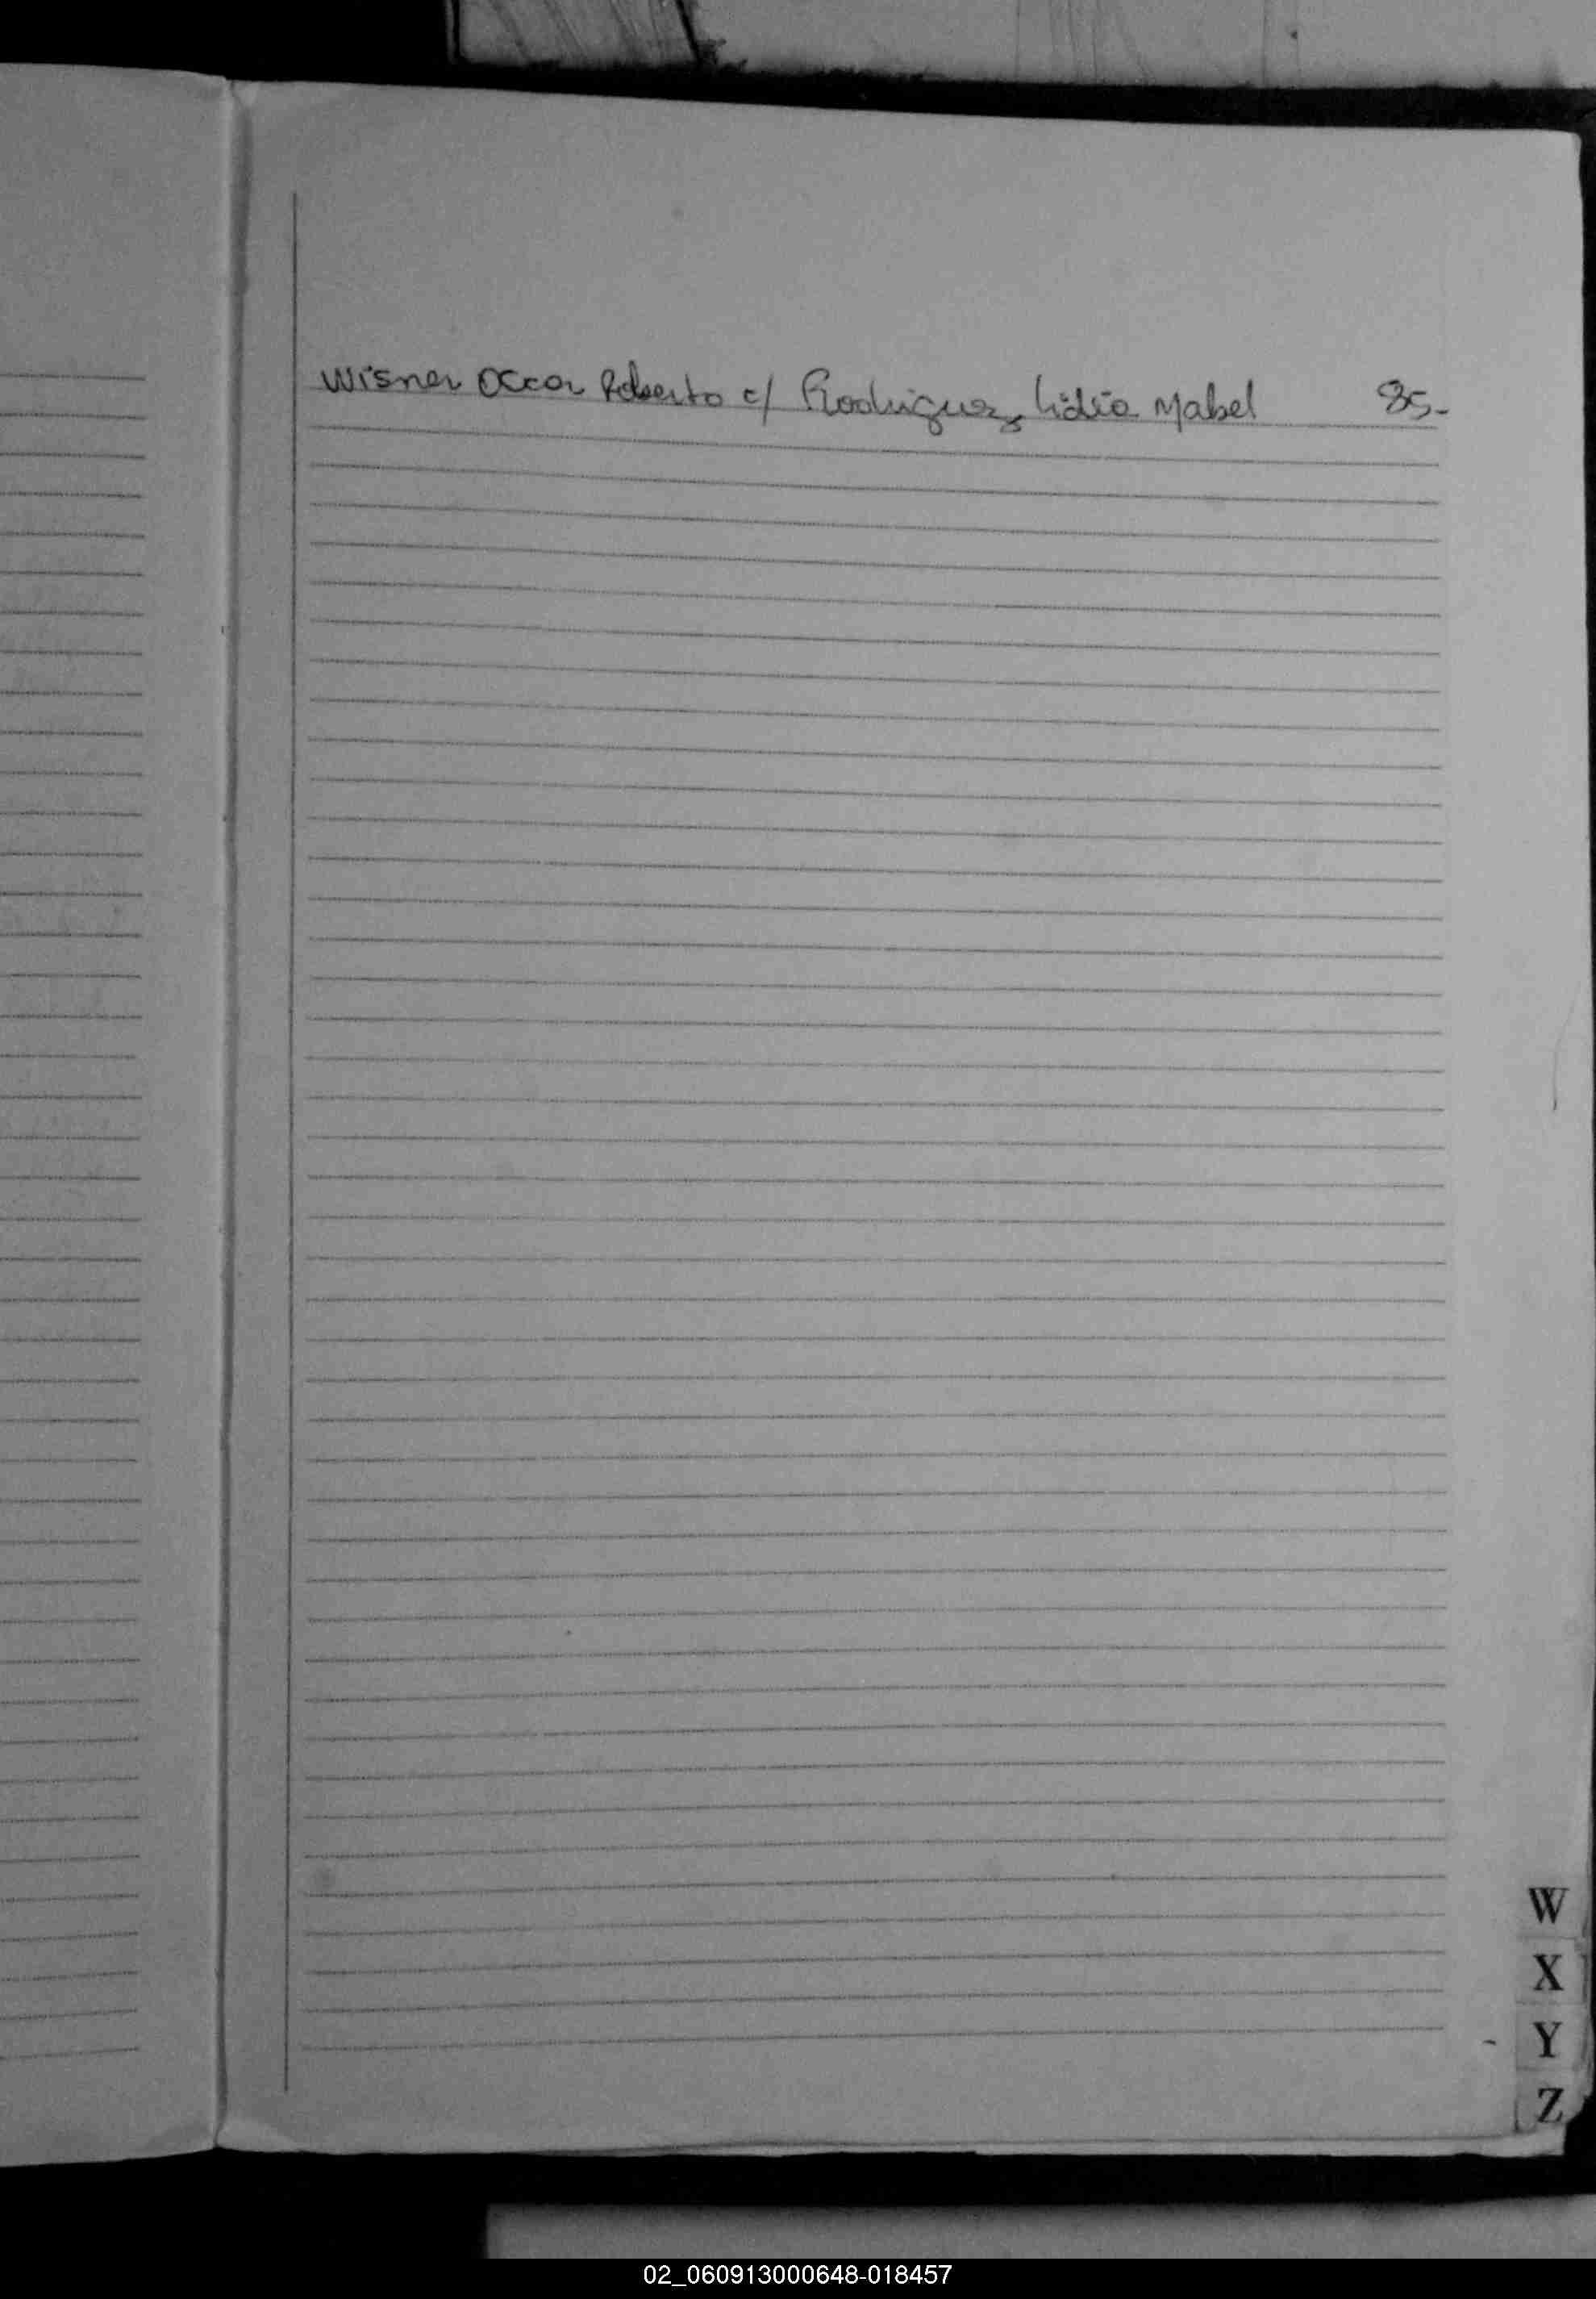 Wisner Occar Roberto c/ Rodriguez, Lidia Mabel 85-
W
X
Y
Z
02_060913000648-018457